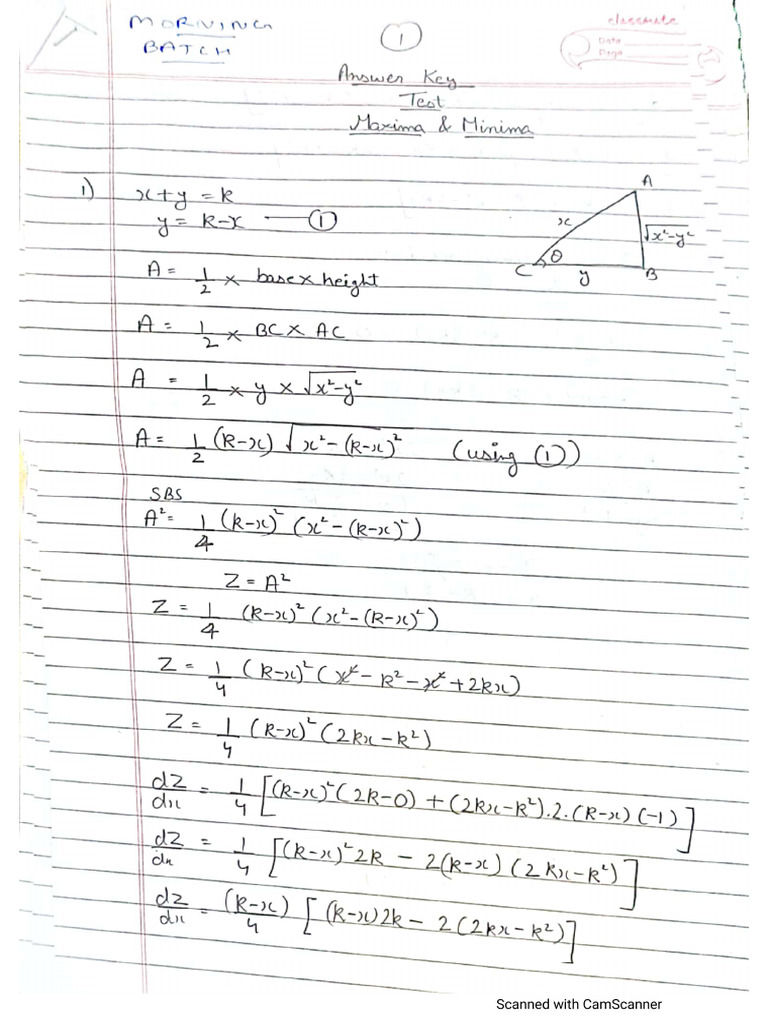 MORNING
BATCH
1
classmate
Date
Page
Answer Key
Test
Maxima & Minima
1) x+y = k
y = k-x — ①
A
x
√x²-y²
θ
C
y
B
A = 1/2 × base × height
A = 1/2 × BC × AC
A = 1/2 × y × √x²-y²
A = 1/2 (k-x) √x²-(k-x)² (using ①)
SBS
A² = 1/4 (k-x)² (x²-(k-x)²)
Z = A²
Z = 1/4 (k-x)² (x²-(k-x)²)
Z = 1/4 (k-x)² (x² - k² - x² + 2kx)
Z = 1/4 (k-x)² (2kx-k²)
dz/dx = 1/4 [(k-x)² (2k-0) + (2kx-k²).2.(k-x) (-1)]
dz/dx = 1/4 [(k-x)² 2k - 2(k-x) (2kx-k²)]
dz/dx = (k-x)/4 [(k-x)2k - 2(2kx-k²)]
Scanned with CamScanner